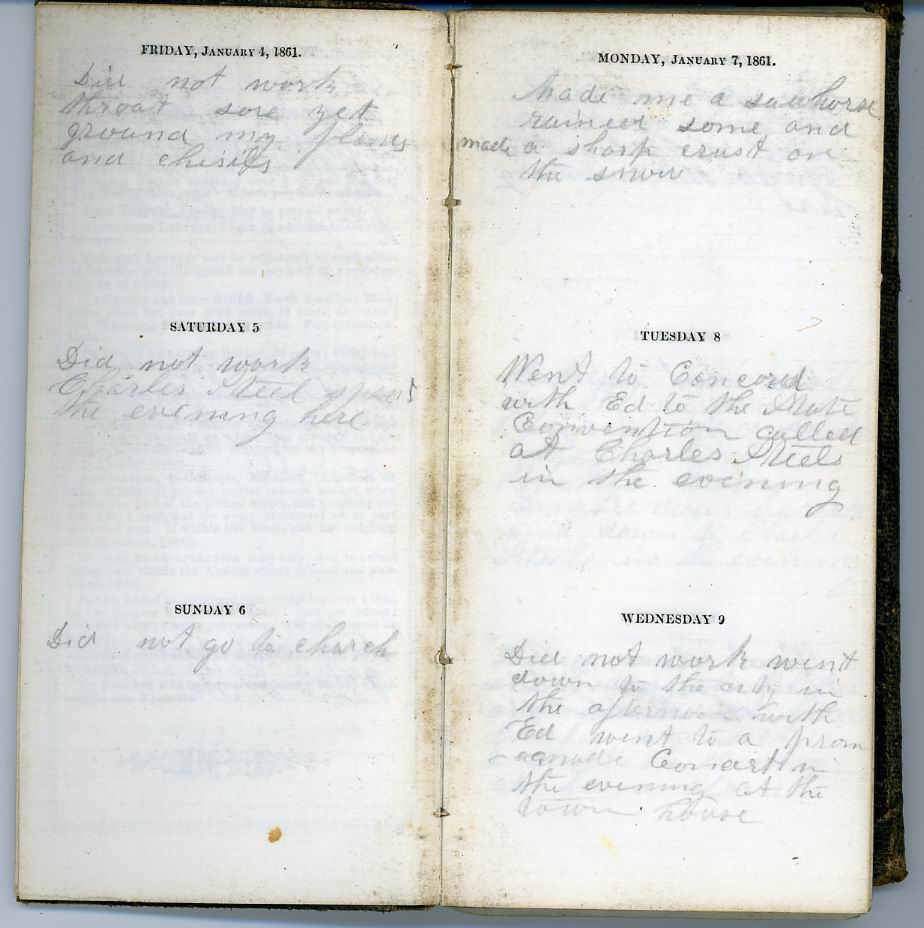 FRIDAY, JANUARY 4, 1861.
Did not work
throat sore yet
ground my planes
and chisils
SATURDAY 5
Did not work
Charles Steel spent
the evening here
SUNDAY 6
Did not go to church
MONDAY, JANUARY 7, 1861.
Made me a sawhorse
rained some and
made a sharp crust on
the snow
TUESDAY 8
Went to Concord
with Ed to the State
Convention called
at Charles Steels
in the evening
WEDNESDAY 9
Did not work went
down to the city in
the afternoon with
Ed went to a prom
-enade Concert in
the evening at the
town house